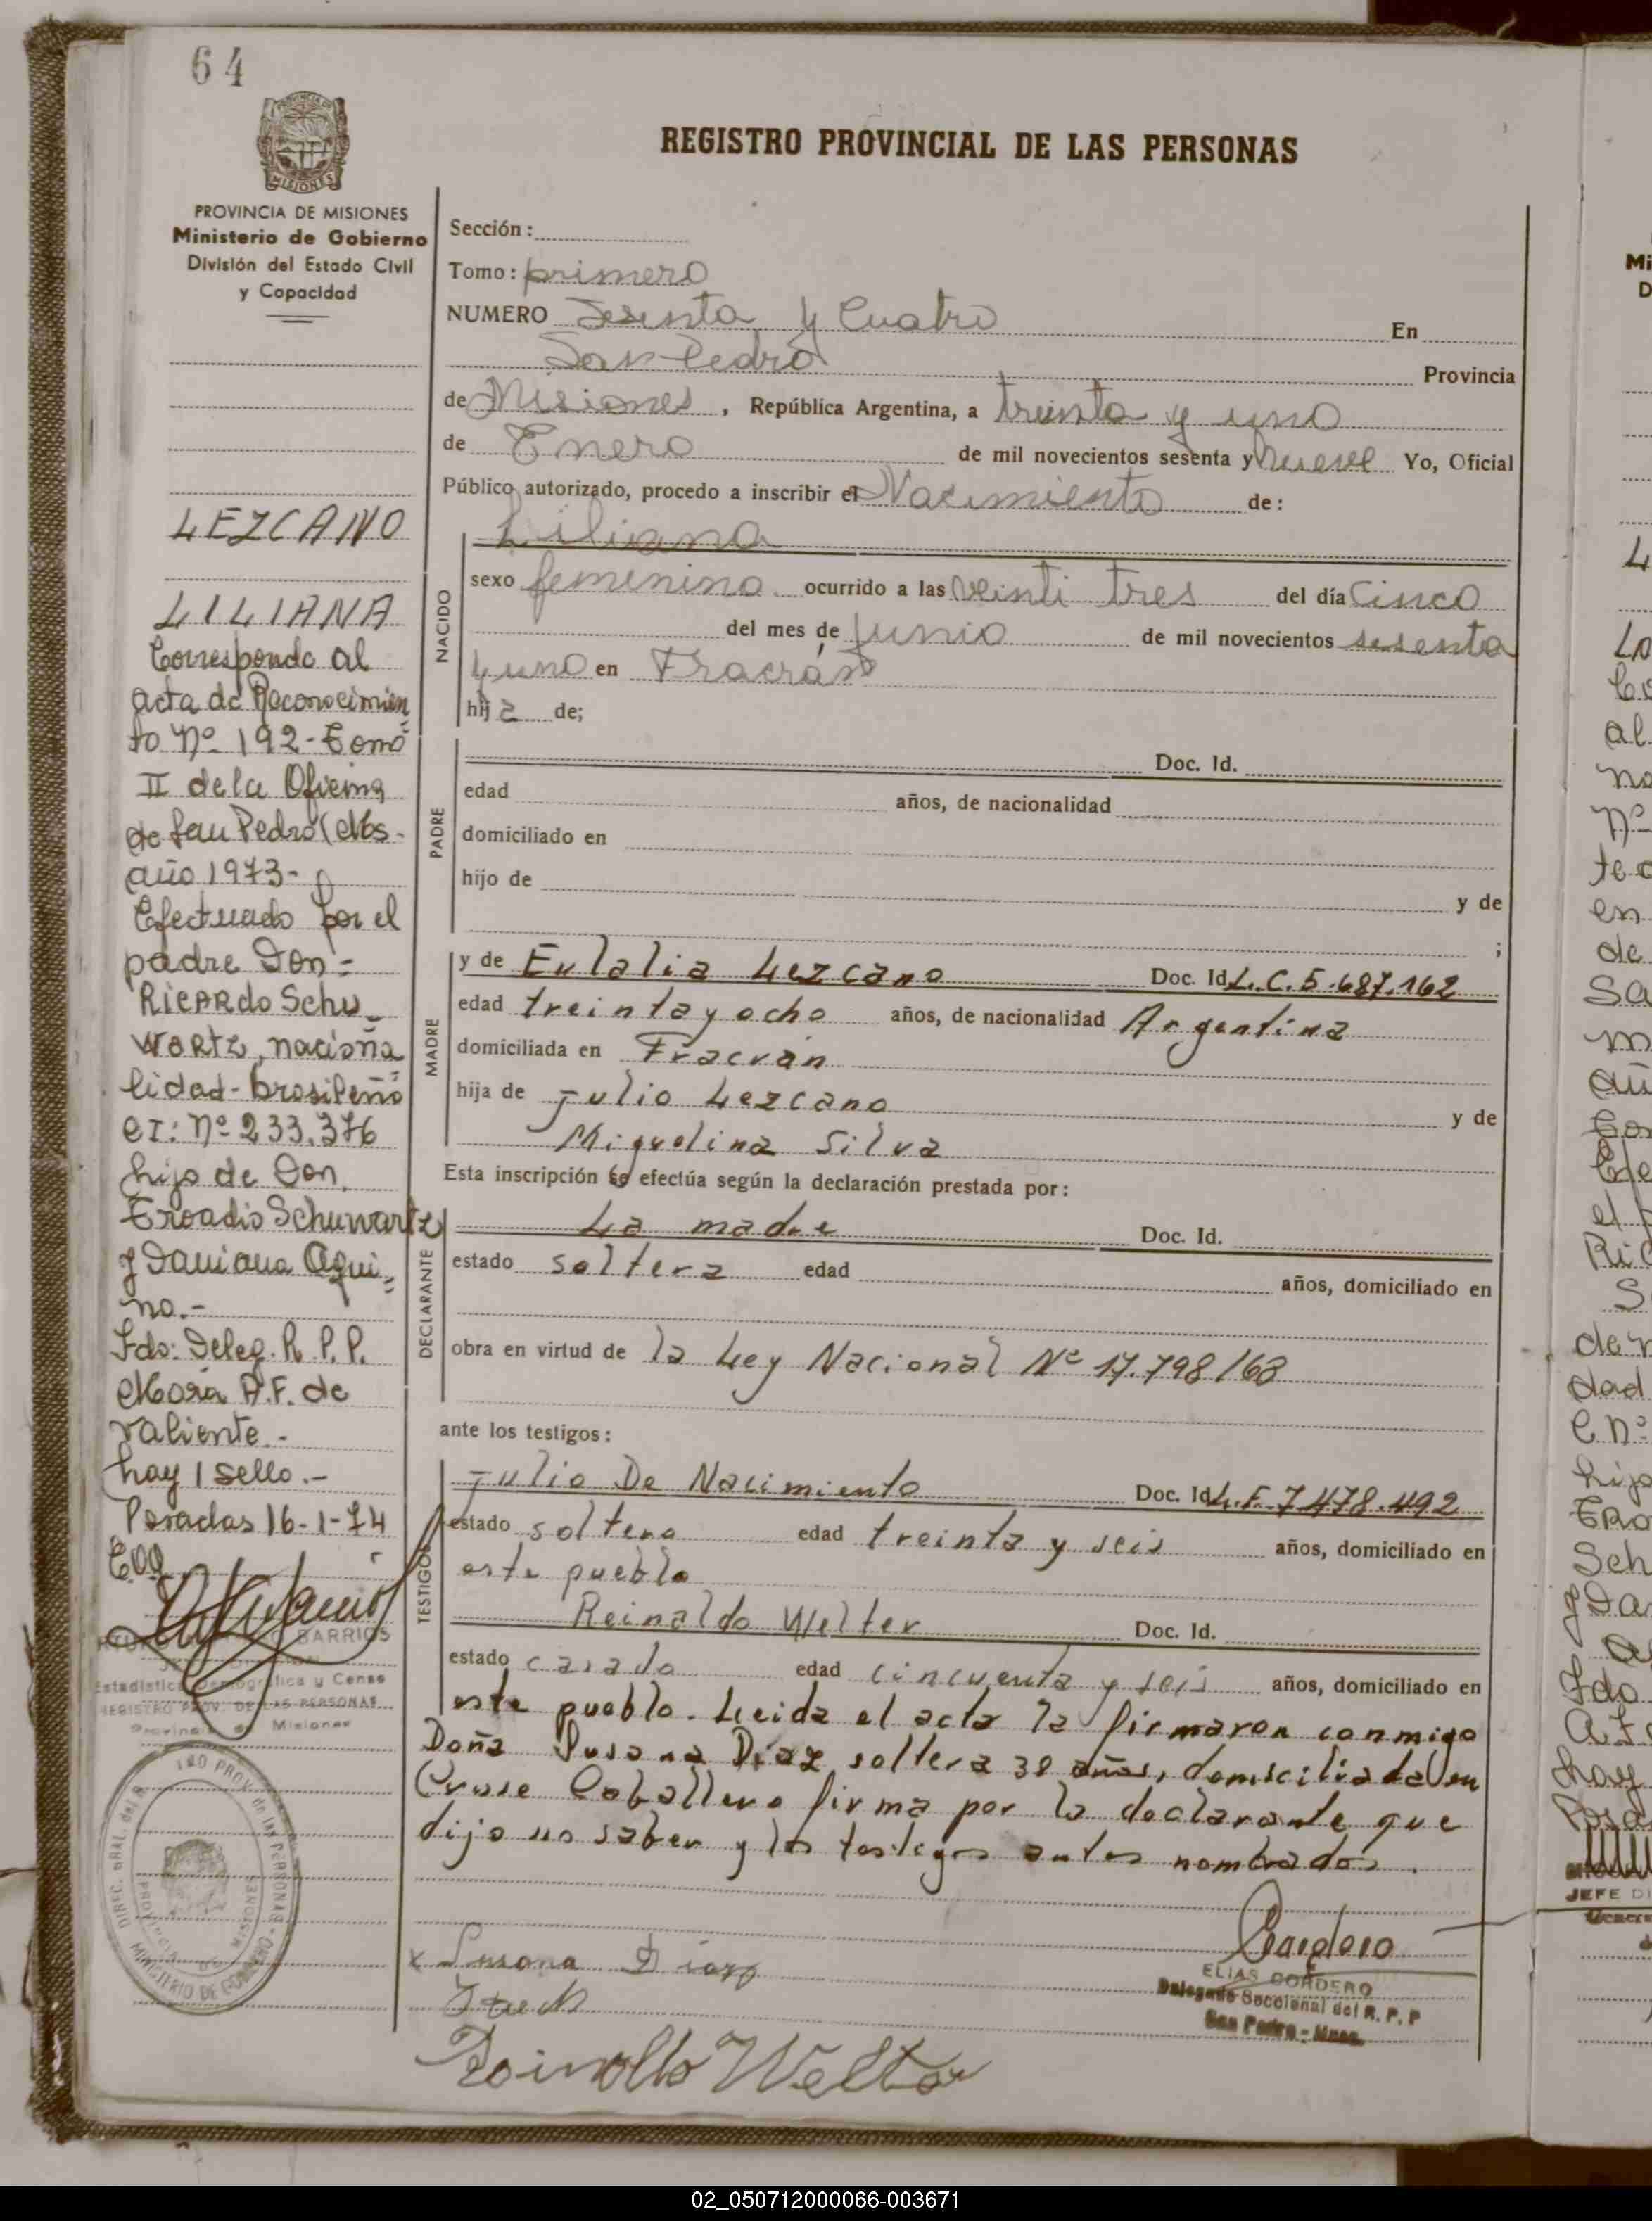 64
PROVINCIA DE MISIONES
Ministerio de Gobierno
División del Estado Civil
y Capacidad
LEZCANO
LILIANA
Corresponde al
acta de Reconocimien
to Nº 192- Tomo
II de la Oficina
de San Pedro (Mbs-
año 1973-
Efectuado por el
padre Don=
RICARdo Schu_
wartz, naciona
lidad- brasileño
CI: Nº 233.376
hijo de Don,
Eroadio Schuwartz
y Daniana Aqui=
no.-
Fdo: Deleg. R. P. P.
Mora A.F. de
Valiente.-
hay 1 sello.-
Posadas 16-1-74
BARRIOS
Estadística Demográfica y Censo
REGISTRO PROV. DE LAS PERSONAS
Provincia de Misiones
REGISTRO PROVINCIAL DE LAS PERSONAS
Sección:
Tomo: primero
NUMERO Sesenta y Cuatro En
San Pedro Provincia
de Misiones, República Argentina, a treinta y uno
de Enero de mil novecientos sesenta y nueve Yo, Oficial
Público autorizado, procedo a inscribir el Nacimiento de:
Liliana
NACIDO
sexo femenino. ocurrido a las veinti tres del día cinco
del mes de junio de mil novecientos sesenta
y uno en Fracrán
hija de;
PADRE
Doc. Id.
edad años, de nacionalidad
domiciliado en
hijo de y de
;
MADRE
y de Eulalia Lezcano Doc. Id L.C. 5.687.162
edad treinta y ocho años, de nacionalidad Argentina
domiciliada en Fracrán
hija de Julio Lezcano y de
Miguelina Silva
Esta inscripción se efectúa según la declaración prestada por:
DECLARANTE
La madre Doc. Id.
estado soltera edad años, domiciliado en
obra en virtud de la Ley Nacional Nº 17.798/68
ante los testigos:
TESTIGOS
Julio De Nacimiento Doc. Id L.E. 7.478.492
estado soltero edad treinta y seis años, domiciliado en
este pueblo
Reinaldo Welter Doc. Id.
estado casado edad cincuenta y seis años, domiciliado en
este pueblo. Leida el acta la firmaron conmigo
Doña Susana Diaz soltera 38 años, domiciliada en
Cruse Caballero firma por la declarante que
dijo no saber y los testigos antes nombrados.
DIREC. GRAL. del R
PROV. de las PERSONAS
MINISTERIO DE GOBIERNO
PROVINCIA DE MISIONES
Cordero
ELIAS CORDERO
Delegado Seccional del R. P. P
San Pedro - Mnes.
x Susana Diaz
Reinoldo Welter
02_050712000066-003671